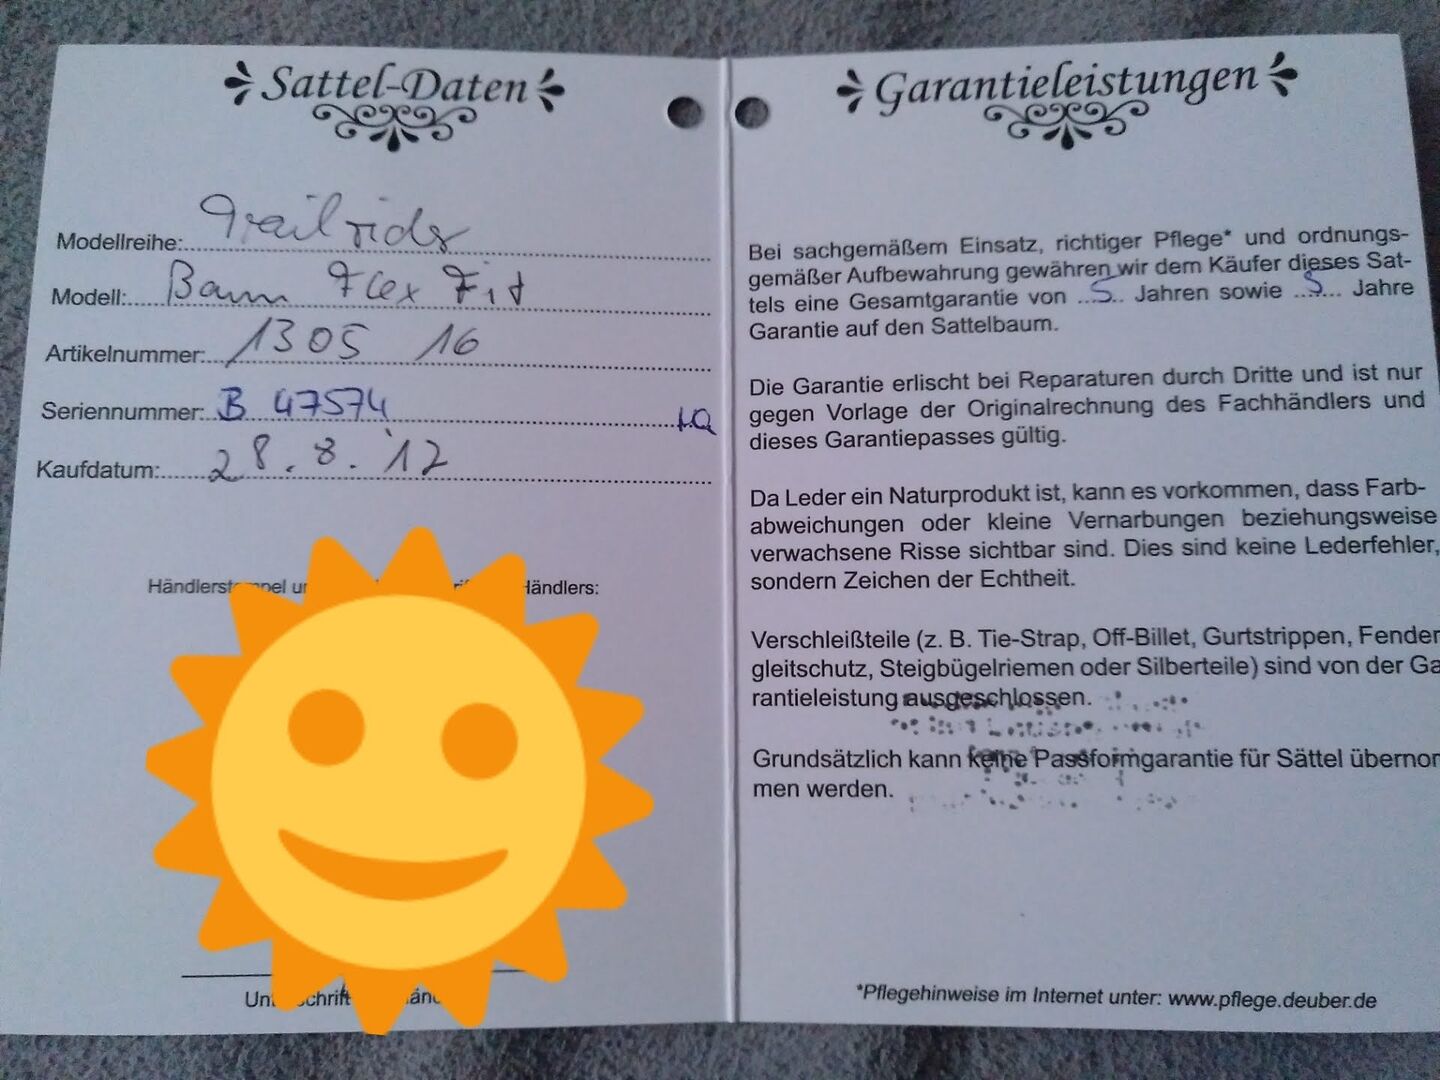 Sattel-Daten
Modellreihe: Trailrider
Modell: Baum Flex Fit
Artikelnummer: 1305 16
Seriennummer: B 47574
Kaufdatum: 28.8.'12
Garantieleistungen
Bei sachgemäßem Einsatz, richtiger Pflege* und ordnungs-
gemäßer Aufbewahrung gewähren wir dem Käufer dieses Sat-
tels eine Gesamtgarantie von ..5.. Jahren sowie ..5... Jahre
Garantie auf den Sattelbaum.
Die Garantie erlischt bei Reparaturen durch Dritte und ist nur
gegen Vorlage der Originalrechnung des Fachhändlers und
dieses Garantiepasses gültig.
Da Leder ein Naturprodukt ist, kann es vorkommen, dass Farb-
abweichungen oder kleine Vernarbungen beziehungsweise
verwachsene Risse sichtbar sind. Dies sind keine Lederfehler,
sondern Zeichen der Echtheit.
Verschleißteile (z. B. Tie-Strap, Off-Billet, Gurtstrippen, Fender
gleitschutz, Steigbügelriemen oder Silberteile) sind von der Ga
rantieleistung ausgeschlossen.
Grundsätzlich kann keine Passformgarantie für Sättel übernom
men werden.
*Pflegehinweise im Internet unter: www.pflege.deuber.de